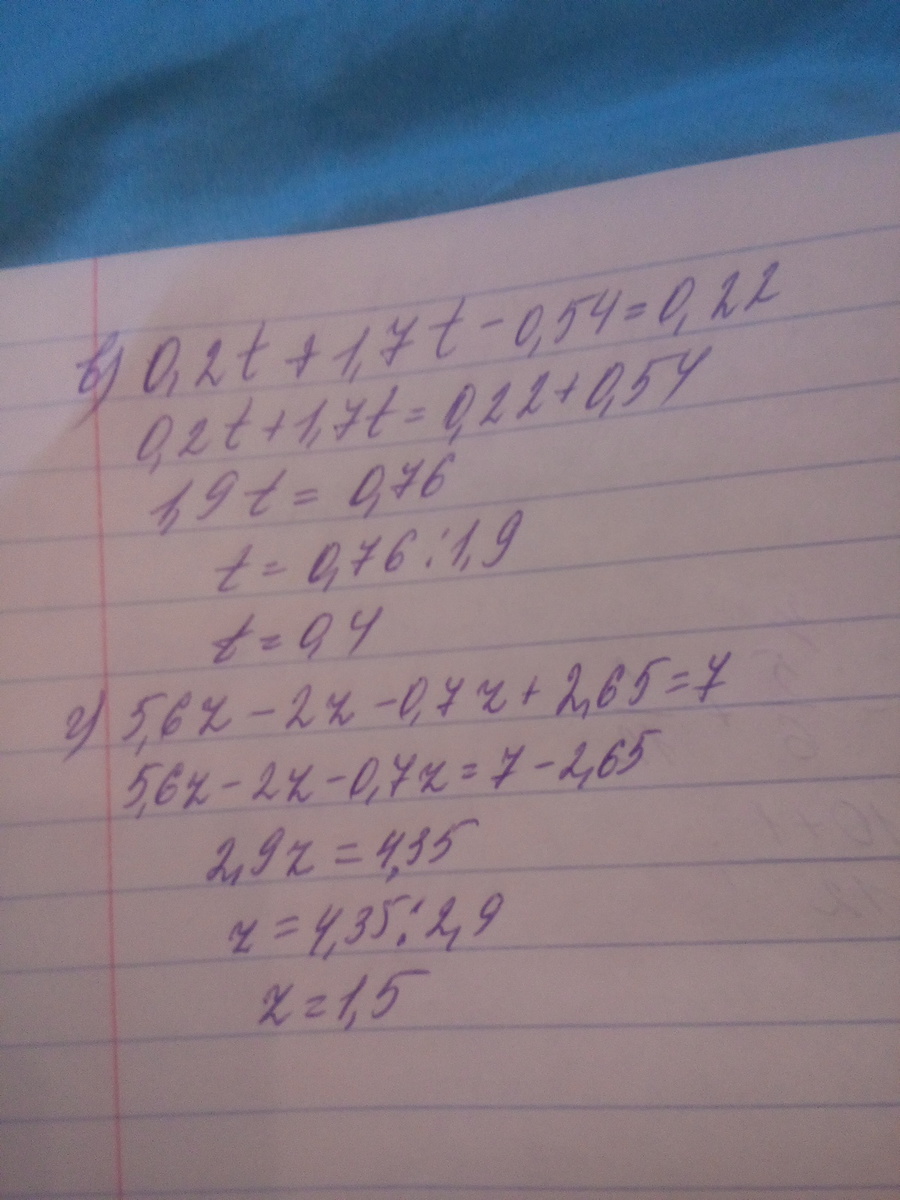 в) 0,2t + 1,7t - 0,54 = 0,22
0,2t + 1,7t = 0,22 + 0,54
1,9t = 0,76
t = 0,76 : 1,9
t = 0,4
г) 5,6z - 2z - 0,7z + 2,65 = 7
5,6z - 2z - 0,7z = 7 - 2,65
2,9z = 4,35
z = 4,35 : 2,9
z = 1,5